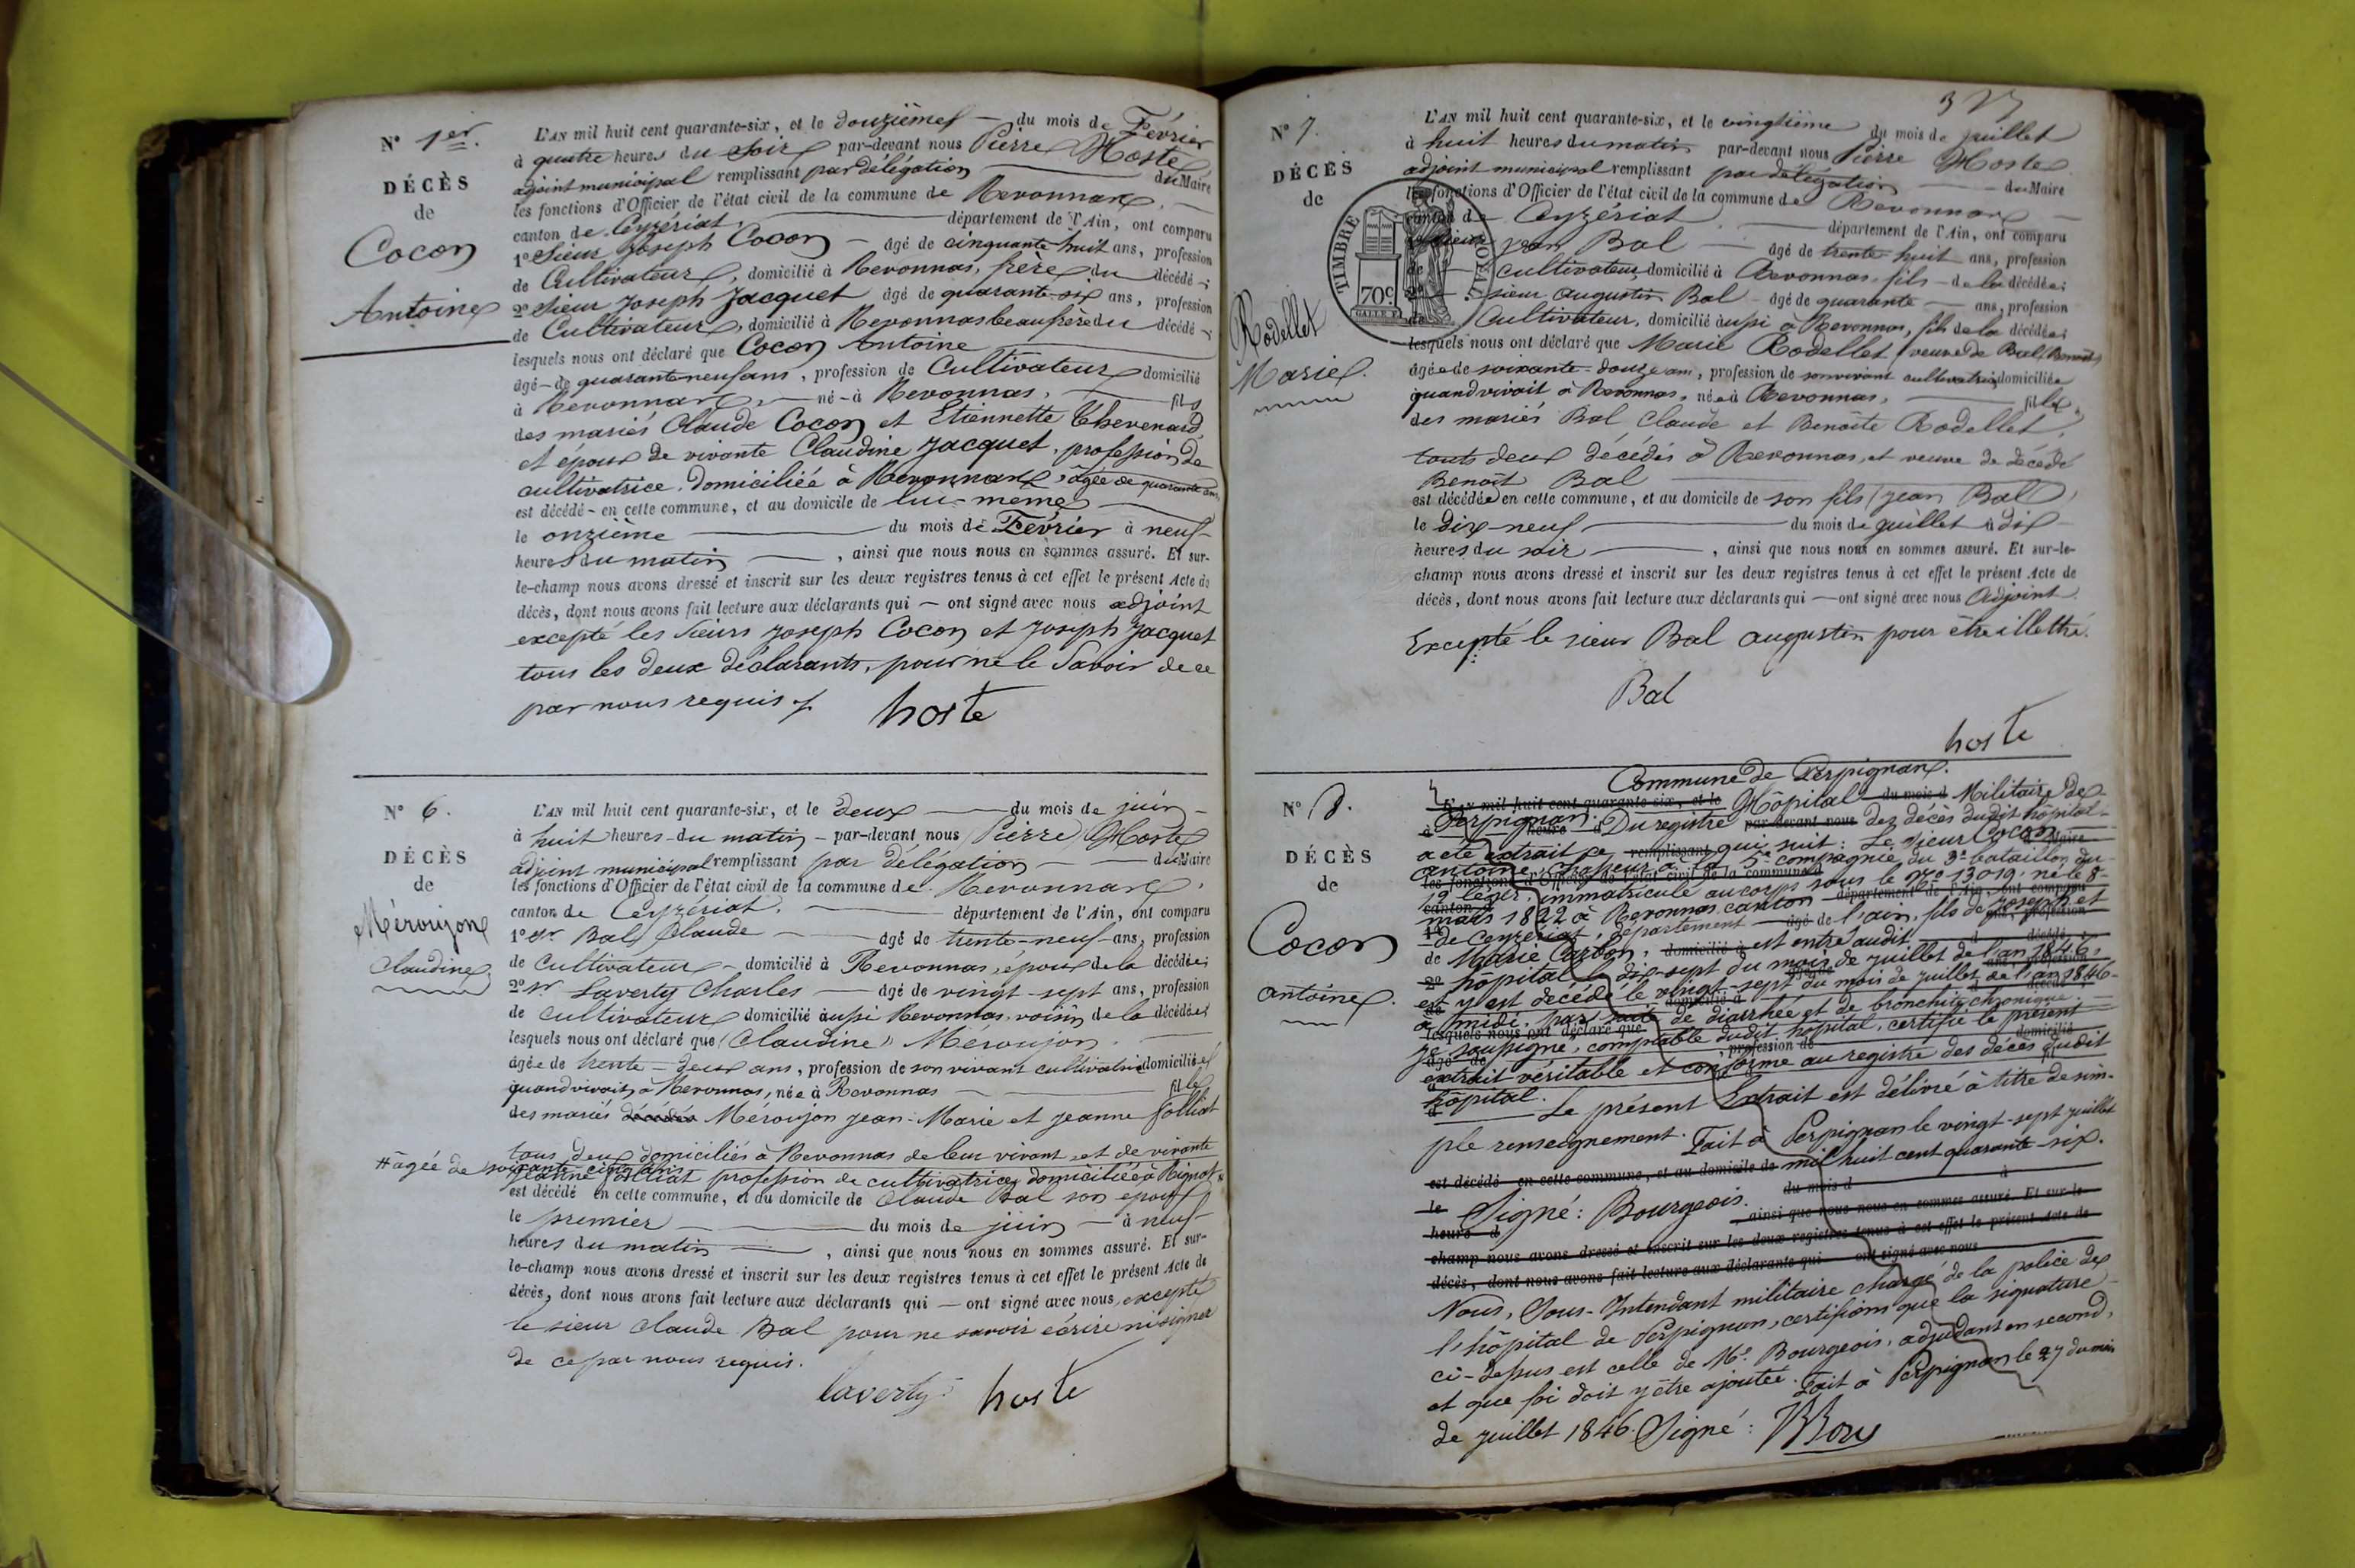 N° 1er.
DÉCÈS
de
Cocon
Antoine
L'AN mil huit cent quarante-six, et le douzième du mois de Février
à quatre heures du soir par-devant nous Pierre Hoste
adjoint municipal remplissant par délégation du Maire
les fonctions d'Officier de l'état civil de la commune de Revonnas,
canton de Ceyzériat, département de l'Ain, ont comparu
1° Sieur Joseph Cocon âgé de cinquante huit ans, profession
de Cultivateur, domicilié à Revonnas, frère du décédé;
2° Sieur Joseph Jacquet âgé de quarante-six ans, profession
de Cultivateur, domicilié à Revonnas beau frère du décédé;
lesquels nous ont déclaré que Cocon Antoine
âgé de quarante neuf ans, profession de Cultivateur domicilié
à Revonnas né à Revonnas, fils
des mariés Claude Cocon et Etiennette Thevenard,
et époux de vivante Claudine Jacquet, profession de
cultivatrice, domiciliée à Revonnas, âgée de quarante ans
est décédé en cette commune, et au domicile de lui-meme
le onzième du mois de Février à neuf
heures du matin, ainsi que nous nous en sommes assuré. Et sur-
le-champ nous avons dressé et inscrit sur les deux registres tenus à cet effet le présent Acte de
décès, dont nous avons fait lecture aux déclarants qui — ont signé avec nous adjoint
excepté les sieurs Joseph Cocon et Joseph Jacquet
tous les deux déclarants, pour ne le savoir de ce
par nous requis.
hoste
N° 6.
DÉCÈS
de
Méroujon
Claudine
L'AN mil huit cent quarante-six, et le deux du mois de juin
à huit heures du matin par-devant nous Pierre Hoste
adjoint municipal remplissant par délégation du Maire
les fonctions d'Officier de l'état civil de la commune de Revonnas,
canton de Ceyzériat, département de l'Ain, ont comparu
1° Sr Bal Claude âgé de trente-neuf ans, profession
de Cultivateur domicilié à Revonnas, époux de la décédée;
2° Sr Laverty Charles âgé de vingt-sept ans, profession
de cultivateur domicilié aussi Revonnas, voisin de la décédée;
lesquels nous ont déclaré que Claudine Méroujon
âgée de trente-deux ans, profession de son vivant cultivatrice domiciliée
quand vivait à Revonnas, née à Revonnas fille
des mariés Méroujon Jean-Marie et Jeanne Folliat
tous deux domiciliés à Revonnas de leur vivant et de vivante
# âgée de soixante-cinq ans
Jeanne Folliat profession de cultivatrice domiciliée à Rignat #
est décédé en cette commune, et au domicile de Claude Bal son époux
le premier du mois de juin à neuf
heures du matin, ainsi que nous nous en sommes assuré. Et sur-
le-champ nous avons dressé et inscrit sur les deux registres tenus à cet effet le présent Acte de
décès, dont nous avons fait lecture aux déclarants qui — ont signé avec nous, excepté
le sieur Claude Bal pour ne savoir écrire ni signer
de ce par nous requis.
laverty hoste
N° 7.
DÉCÈS
de
Rodellet
Marie.
TIMBRE ROYAL
70c.
L'AN mil huit cent quarante-six, et le vingtième du mois de juillet
à huit heures du matin par-devant nous Pierre Hoste
adjoint municipal remplissant par délégation du Maire
les fonctions d'Officier de l'état civil de la commune de Revonnas
canton de Ceyzériat département de l'Ain, ont comparu
1° sieur Jean Bal âgé de trente-huit ans, profession
de cultivateur domicilié à Revonnas fils de la décédée;
2° sieur Augustin Bal âgé de quarante ans, profession
de Cultivateur, domicilié aussi à Revonnas, fils de la décédée;
lesquels nous ont déclaré que Marie Rodellet veuve de Bal Benoît
âgée de soixante-douze ans, profession de son vivant cultivatrice domiciliée
quand vivait à Revonnas, née à Revonnas, fille
des mariés Bal Claude et Benoîte Rodellet,
touts deux décédés à Revonnas, et veuve de décédé
Benoît Bal
est décédée en cette commune, et au domicile de son fils Jean Bal,
le dix-neuf du mois de juillet à dix
heures du soir, ainsi que nous nous en sommes assuré. Et sur-le-
champ nous avons dressé et inscrit sur les deux registres tenus à cet effet le présent Acte de
décès, dont nous avons fait lecture aux déclarants qui — ont signé avec nous Adjoint
Excepté le sieur Bal augustin pour être illettré.
Bal
hoste
N° 8.
DÉCÈS
de
Cocon
antoine.
Commune de Perpignan.
Hôpital Militaire de
Perpignan. Du registre des décès dudit hôpital
a été extrait ce qui suit: Le Sieur Cocon
antoine, Chasseur à la 5e compagnie du 3e bataillon du
léger, immatriculé au corps sous le N° 13019, né le 8
mars 1822 à Revonnas canton
de Ceyzériat, département de l'ain, fils de Joseph et
de Marie Carbon, est entré audit
hôpital le dix-sept du mois de juillet de l'an 1846,
et y est décédé le vingt-sept du mois de juillet de l'an 1846
à midi, par suite de diarrhée et de bronchite chronique.
Je soussigné, comptable dudit hôpital, certifie le présent
extrait véritable et conforme au registre des décès dudit
hôpital. Le présent Extrait est délivré à titre de sim-
ple renseignement. Fait à Perpignan le vingt-sept juillet
mil huit cent quarante-six.
Signé: Bourgeois.
Nous, Sous-Intendant militaire chargé de la police de
l'hôpital de Perpignan, certifions que la signature
ci-dessus est celle de Mr. Bourgeois, adjudant en second,
et que foi doit y être ajoutée. Fait à Perpignan le 27 du mois
de juillet 1846. Signé: